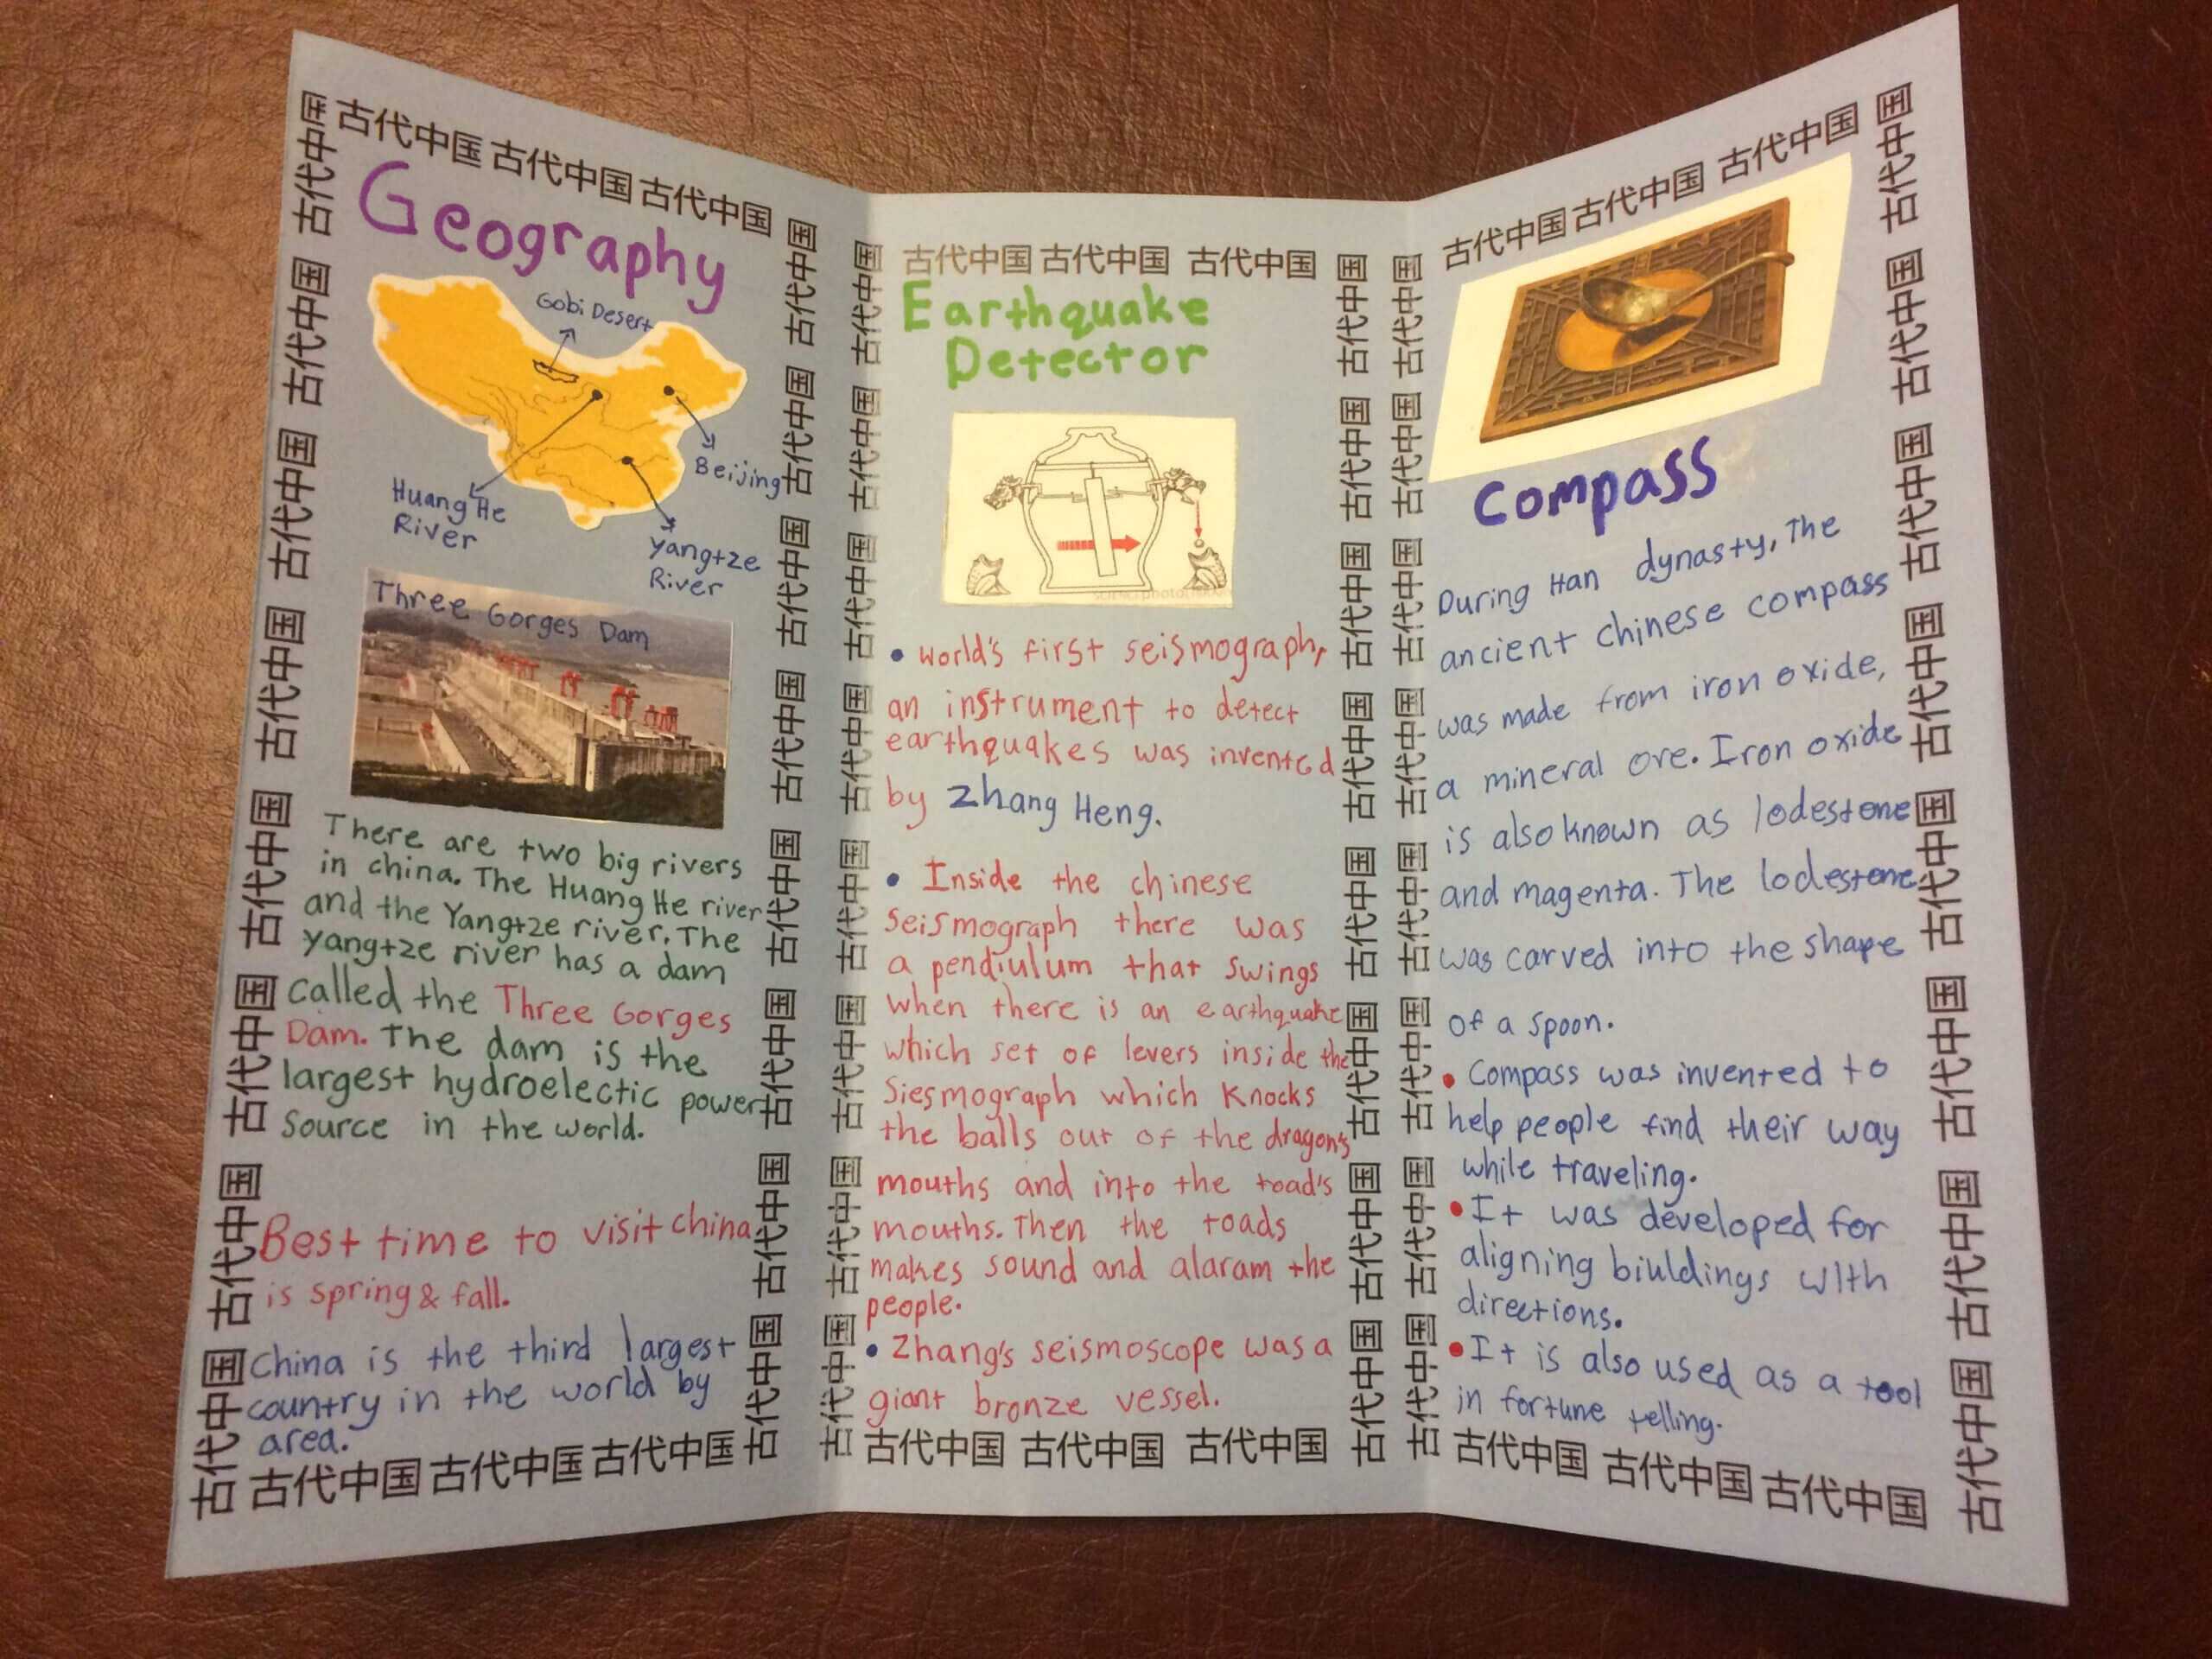 古代中国 古代中国 古代中国
古代中国 古代中国 古代中国 古代中国 古代中国 古代中国 古代中国 古代中国
Geography
Gobi Desert
Beijing
Huang He
River
Yangtze
River
Three Gorges Dam
There are two big rivers
in china. The Huang He river
and the Yangtze river. The
yangtze river has a dam
called the Three Gorges
Dam. The dam is the
largest hydroelectic power
source in the world.
Best time to visit china
is spring & fall.
China is the third largest
country in the world by
area.
古代中国 古代中国 古代中国 古代中国 古代中国 古代中国 古代中国 古代中国
古代中国 古代中国 古代中国
古代中国 古代中国 古代中国
古代中国 古代中国 古代中国 古代中国 古代中国 古代中国 古代中国 古代中国
Earthquake
Detector
• World's first seismograph,
an instrument to detect
earthquakes was invented
by Zhang Heng.
• Inside the chinese
seismograph there was
a pendiulum that swings
when there is an earthquake
which set of levers inside the
Siesmograph which knocks
the balls out of the dragon's
mouths and into the toad's
mouths. Then the toads
makes sound and alaram the
people.
• Zhang's seismoscope was a
giant bronze vessel.
古代中国 古代中国 古代中国 古代中国 古代中国 古代中国 古代中国 古代中国
古代中国 古代中国 古代中国
古代中国 古代中国 古代中国
古代中国 古代中国 古代中国 古代中国 古代中国 古代中国 古代中国 古代中国
Compass
During Han dynasty, The
ancient chinese compass
was made from iron oxide,
a mineral ore. Iron oxide
is also known as lodestone
and magenta. The lodestone
was carved into the shape
of a spoon.
• Compass was invented to
help people find their way
while traveling.
• It was developed for
aligning biuldings with
directions.
• It is also used as a tool
in fortune telling.
古代中国 古代中国 古代中国 古代中国 古代中国 古代中国 古代中国 古代中国
古代中国 古代中国 古代中国